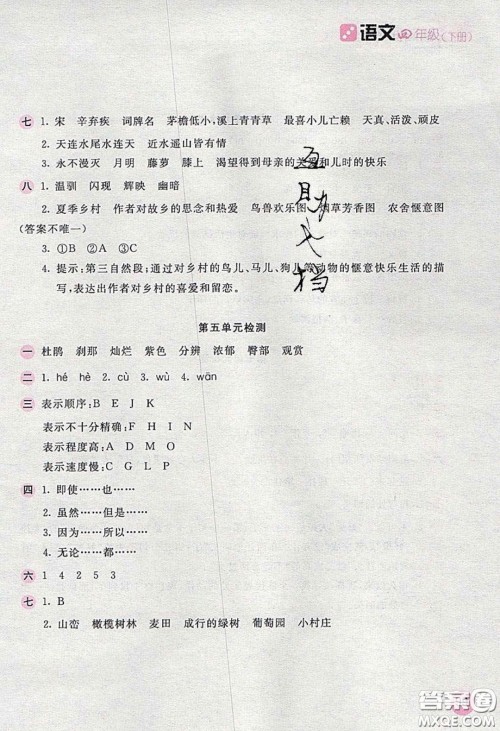 语文 四年级(下册)
七 1. 宋 辛弃疾 词牌名 茅檐低小,溪上青青草 最喜小儿亡赖 天真、活泼、顽皮
2. 天连水尾水连天 近水遥山皆有情
3. 永不漫灭 月明 藤萝 膝上 渴望得到母亲的关爱和儿时的快乐
八 1. 温驯 闪现 辉映 幽暗
2. 夏季乡村 作者对故乡的思念和热爱 鸟兽欢乐图 烟草芳香图 农舍惬意图
(答案不唯一)
3. ①B ②A ③C
4. 提示:第三自然段:通过对乡村的鸟儿、马儿、狗儿等动物的惬意快乐生活的描
写,表达出作者对乡村的喜爱和留恋。
第五单元检测
一 杜鹃 刹那 灿烂 紫色 分辨 浓郁 臀部 观赏
二 1. hé hè 2. cù 3. wù 4. wān
三 表示顺序:B E J K
表示不十分精确:F H I N
表示程度高:A D M
表示速度慢:C G L P
四 1. 即使……也……
2. 虽然……但是……
3. 因为……所以……
4. 无论……都……
六 1 4 2 5 3
七 1. B
2. 山峦 橄榄树林 麦田 成行的绿树 葡萄园 小村庄
答案圈
MXQE.COM